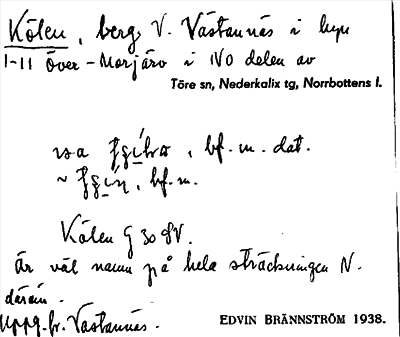 Kölen, berg, V. Västannäs i byn
1-11 Över-Morjärv i NO delen av
Töre sn, Nederkalix tg, Norrbottens l.
bf. m. dat.
~ bf. m.
Kölen G 30 gV.
Är väl namn på hela sträckningen N.
därin.
Uppg. fr. Västannäs.
EDVIN BRÄNNSTRÖM 1938.